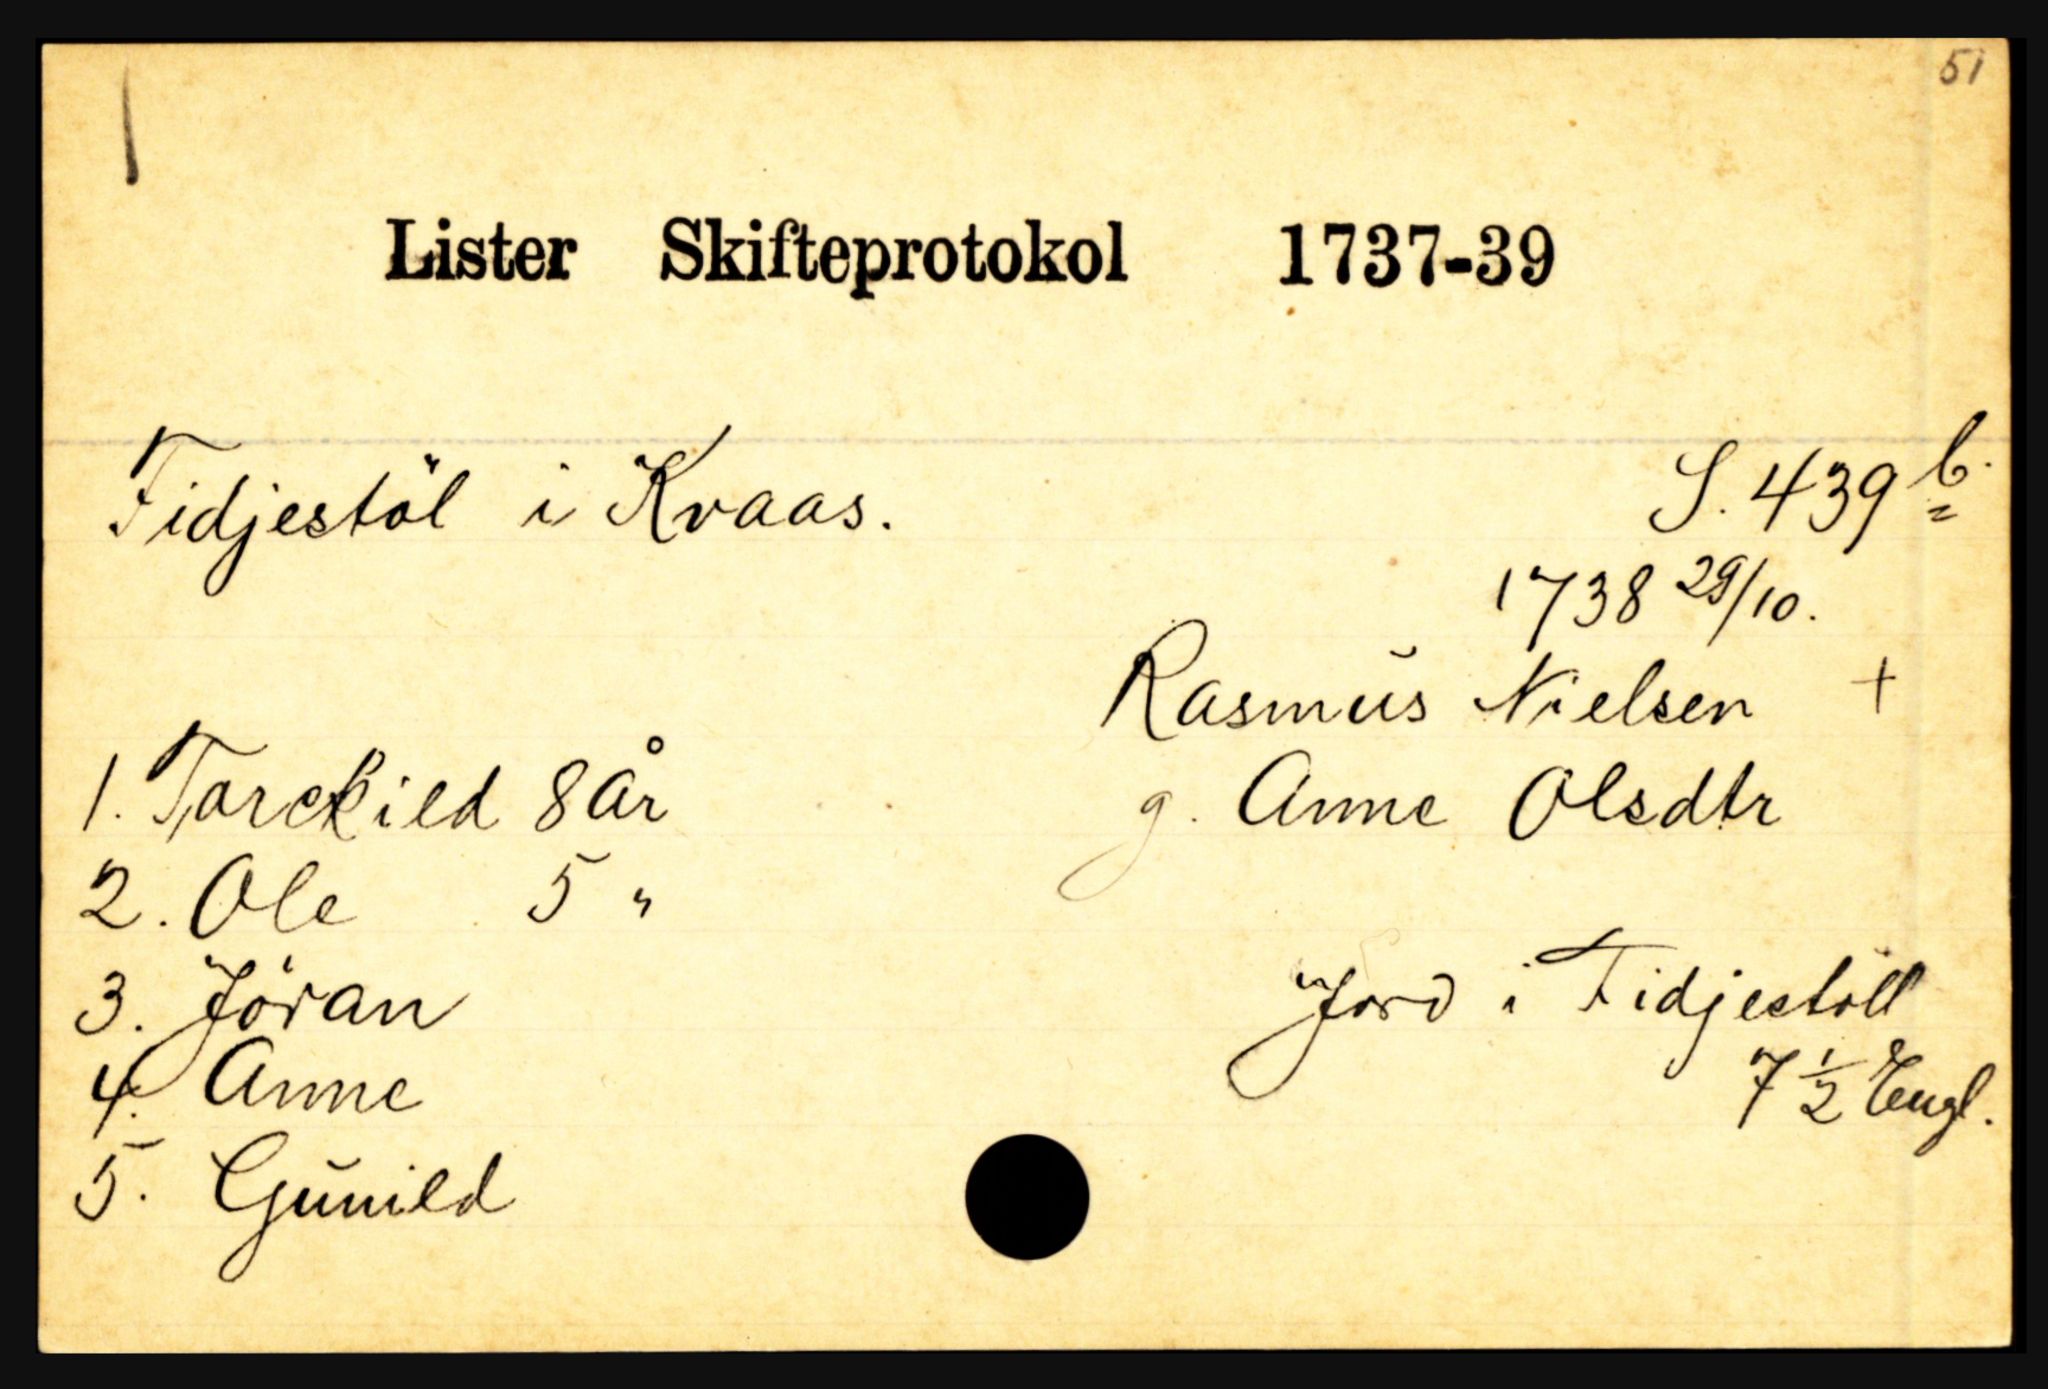 51
Lister Skifteprotokol 1737-39
Fidjestöl i Kvaas.
S. 439 b.
1738 29/10.
Rasmus Nielsen +
g. Anne Olsdtr
1. Torckild 8 År
2. Ole 5 "
3. Jöran
4. Anne
5. Gunild
Jord i Fidjestöll
7 1/2 Engl.